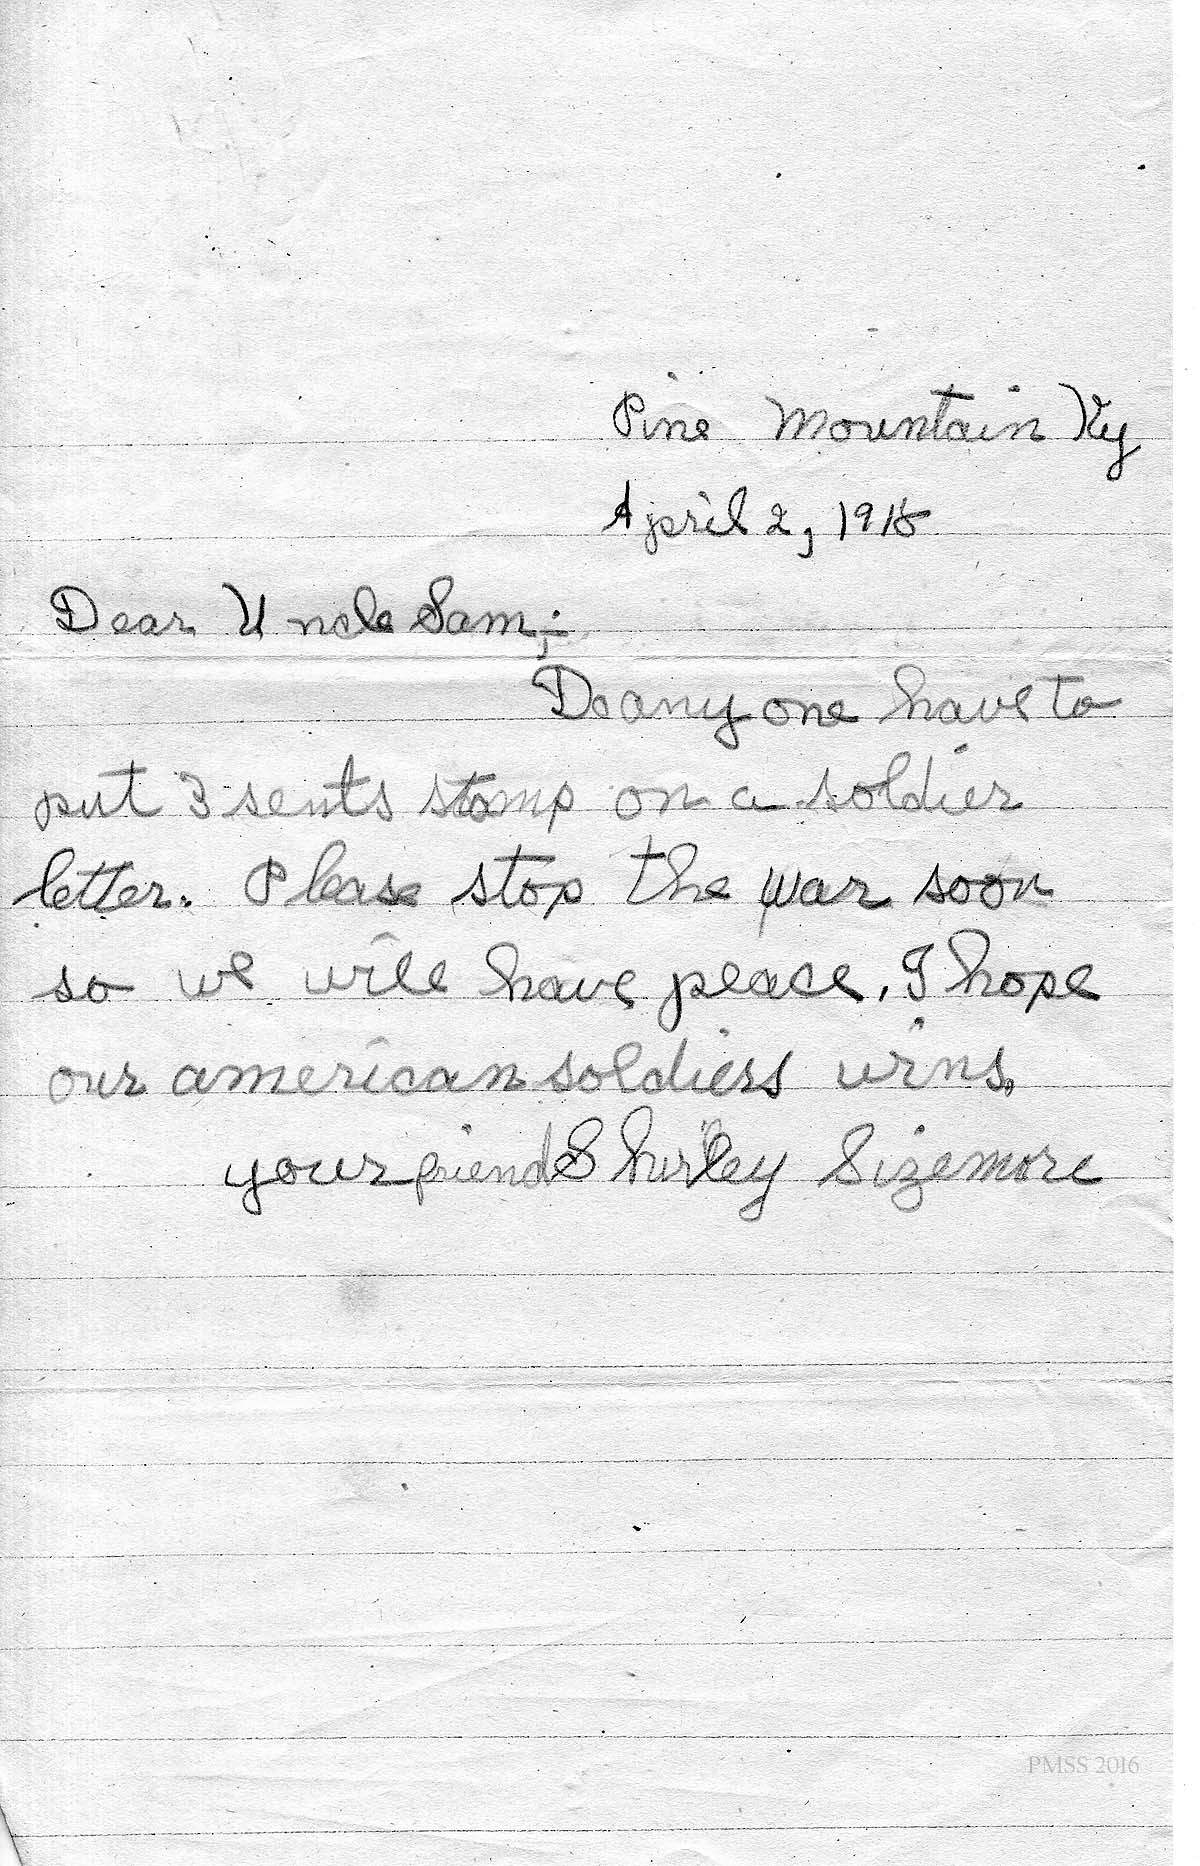 Pine Mountain Ky
April 2, 1918
Dear Uncle Sam;-
Do any one have to
put 3 sents stamp on a soldier
letter. Please stop the war soon
so we will have peace. I hope
our american soldiers wins.
your friend Shurley Sizemore
PMSS 2016